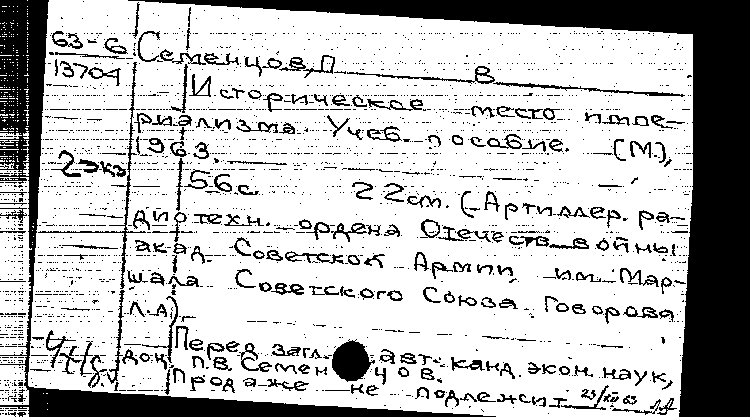 63-6 Семенцов, П В
13704
Историческое место импе-
риализма. Учеб. пособие. (М.),
1963.
2 экз
56 с. 22 см. (Артиллер. ра-
диотехн. ордена Отечеств. войны
акад. Советской Армии им. Мар-
шала Советского Союза Говорова
Л.А).
Перед загл. авт. канд. экон. наук,
доц. П.В. Семенцов.
Продаже не подлежит 23/XII 63